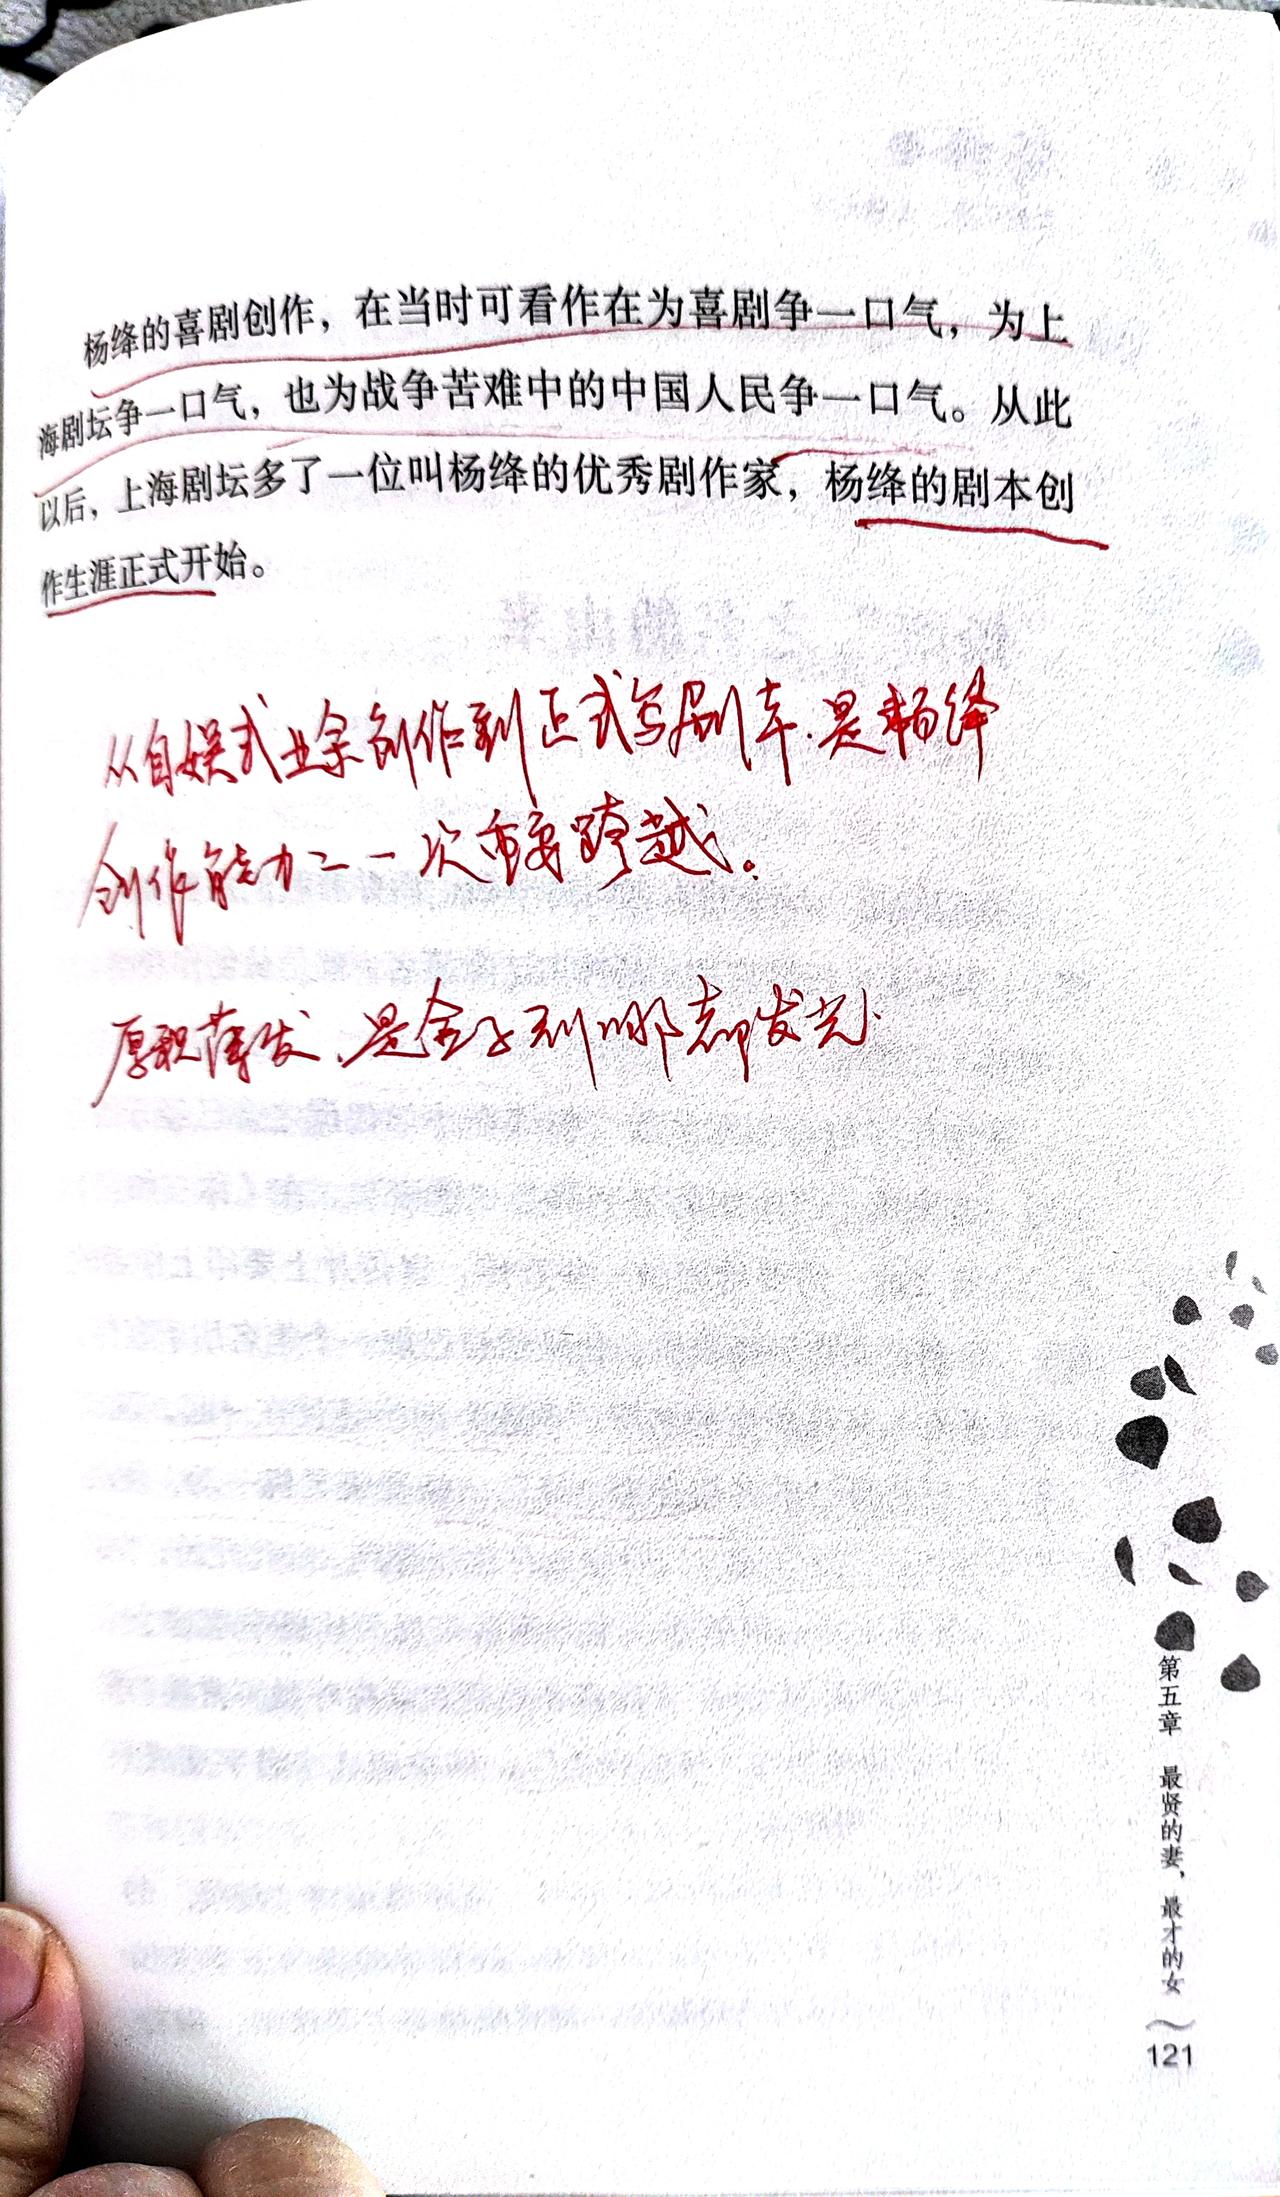 杨绛的喜剧创作，在当时可看作在为喜剧争一口气，为上
海剧坛争一口气，也为战争苦难中的中国人民争一口气。从此
以后，上海剧坛多了一位叫杨绛的优秀剧作家，杨绛的剧本创
作生涯正式开始。
从自娱式业余创作到正式写剧本.是杨绛
创作能力之一次重要跨越。
厚积薄发、是金子到哪都发光.
第五章 最贤的妻，最才的女
121